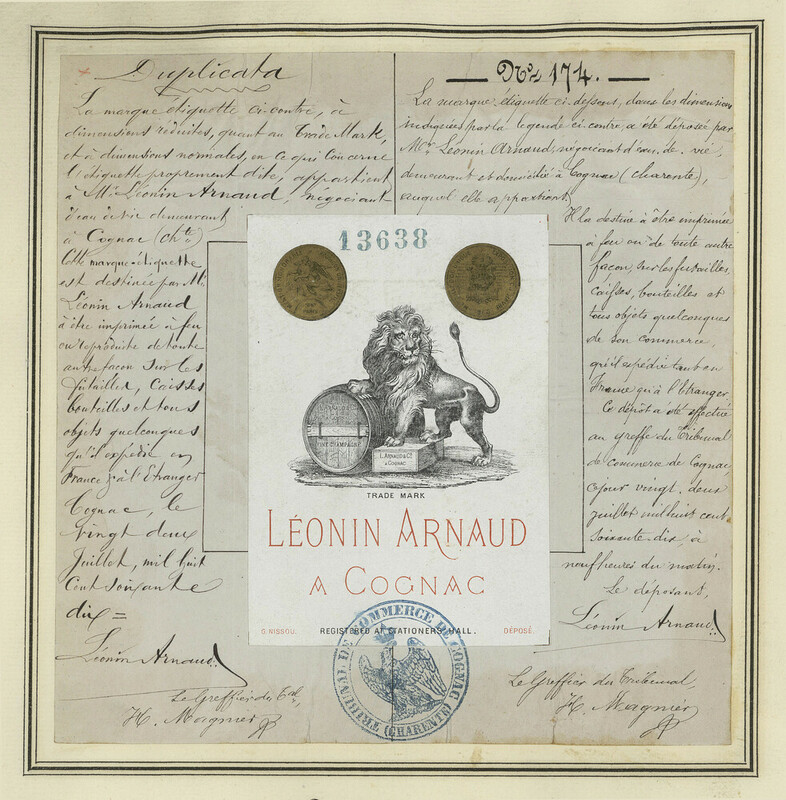 Duplicata
La marque étiquette ci-contre, à
dimensions réduites, quant au Trade Mark,
et à dimensions normales, en ce qui concerne
l'étiquette proprement dite, appartient
à Mr. Léonin Arnaud, négociant
d'eau de vie demeurant
à Cognac (chte)
Cette marque-étiquette
est destinée par Mr.
Léonin Arnaud
à être imprimée à feu
ou reproduite de toute
autre façon sur les
futailles, caisses
bouteilles et tous
objets quelconques
qu'il expédie en
France & à l'Etranger
Cognac, le
vingt deux
Juillet, mil huit
Cent soixante
dix =
Léonin Arnaud
Le Greffier du
H. Magnier
No. 174.
La marque étiquette ci-dessous, dans les dimensions
indiquées par la légende ci-contre, a été déposée par
Mr. Léonin Arnaud, négociant d'eau-de-vie,
demeurant et domicilié à Cognac (charente),
auquel elle appartient.
Il la destine à être imprimée
à feu ou de toute autre
façon, sur les futailles,
caisses, bouteilles et
tous objets quelconques
de son commerce,
qu'il expédie tant en
France qu'à l'Etranger.
Ce dépôt a été effectué
au greffe du Tribunal
de commerce de Cognac
ce jour vingt-deux
juillet mil huit cent
soixante-dix, à
neuf heures du matin.
Le déposant,
Léonin Arnaud
Le Greffier du Tribunal,
H. Magnier
13638
FINE CHAMPAGNE
L. ARNAUD & Cie
A COGNAC
TRADE MARK
LÉONIN ARNAUD
A COGNAC
G. NISSOU.
REGISTERED AT STATIONERS' HALL.
DÉPOSÉ.
TRIBUNAL DE COMMERCE DE COGNAC
(CHARENTE)